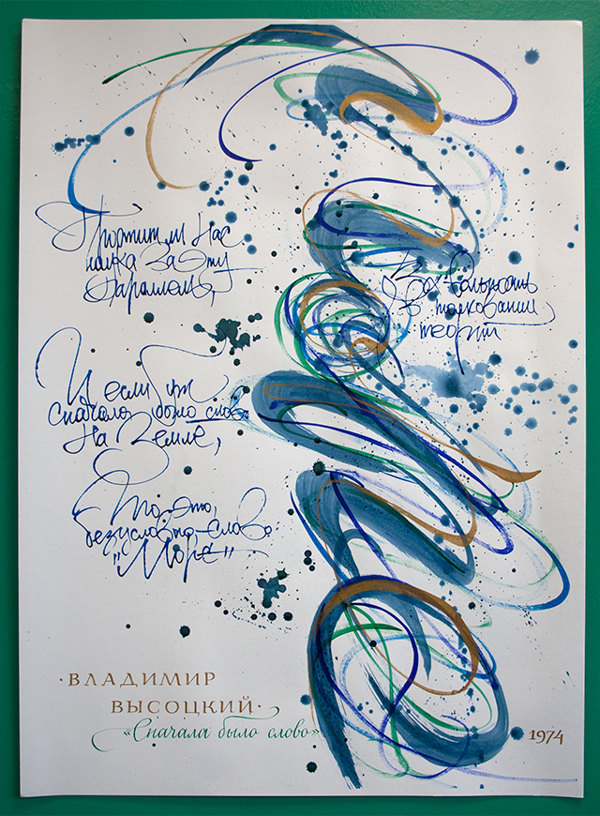 Простит ли нас
наука за эту
параллель,
За вольность
в толковании
теорий
И если уж
сначала было слово
На Земле,
То это,
безусловно, слово
"Море"
·ВЛАДИМИР
ВЫСОЦКИЙ·
«Сначала было слово»
1974